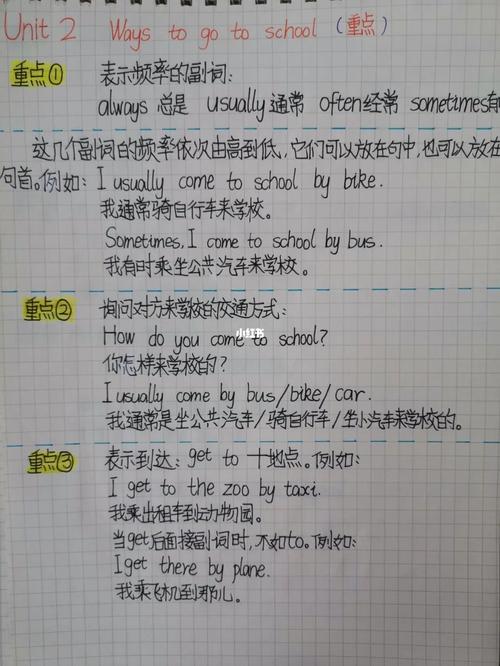 Unit 2 Ways to go to school (重点)
重点① 表示频率的副词:
always 总是 usually通常 often经常 sometimes有
这几个副词的频率依次由高到低,它们可以放在句中,也可以放在
句首。例如: I usually come to school by bike.
我通常骑自行车来学校。
Sometimes, I come to school by bus.
我有时乘坐公共汽车来学校。
重点② 询问对方来学校的交通方式:
How do you come to school?
小红书
你怎样来学校的?
I usually come by bus/bike/car.
我通常是坐公共汽车/骑自行车/坐小汽车来学校的。
重点③ 表示到达: get to 十地点。例如:
I get to the zoo by taxi.
我乘出租车到动物园。
当get后面接副词时,不如to。例如:
I get there by plane.
我乘飞机到那儿。